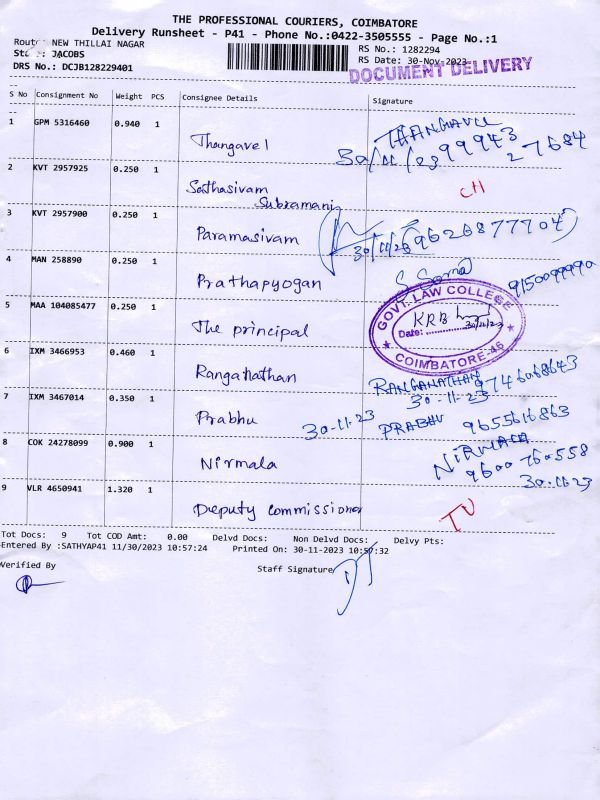 THE PROFESSIONAL COURIERS, COIMBATORE
Delivery Runsheet - P41 - Phone No.:0422-3505555 - Page No.:1
Route: NEW THILLAI NAGAR
RS No.: 1282294
JACOBS
RS Date: 30-Nov-2023
DRS No.: DCJB128229401
DOCUMENT DELIVERY
S No Consignment No Weight PCS Consignee Details Signature
1 GPM 5316460 0.940 1 Thangavel THANGAVEL
30/11/23 99943 27684
2 KVT 2957925 0.250 1 Sathasivam CH
Subramani
3 KVT 2957900 0.250 1 Paramasivam 30/11/23 9626877704
4 MAN 258890 0.250 1 Prathapyogan
5 MAA 104085477 0.250 1 The principal
GOVT. LAW COLLEGE
KRB
Date: 30/11/23
COIMBATORE-46
6 IXM 3466953 0.460 1 Ranganathan RANGANATHAN 9746068643
30-11-23
7 IXM 3467014 0.350 1 Prabhu 30-11-23 PRABHU 9655616863
8 COK 24278099 0.900 1 Nirmala NIRMALA
9600760558
30-11-23
9 VLR 4650941 1.320 1 Deputy commissioner
Tot Docs: 9 Tot COD Amt: 0.00 Delvd Docs: Non Delvd Docs: Delvy Pts:
Entered By :SATHYAP41 11/30/2023 10:57:24 Printed On: 30-11-2023 10:57:32
Verified By
Staff Signature